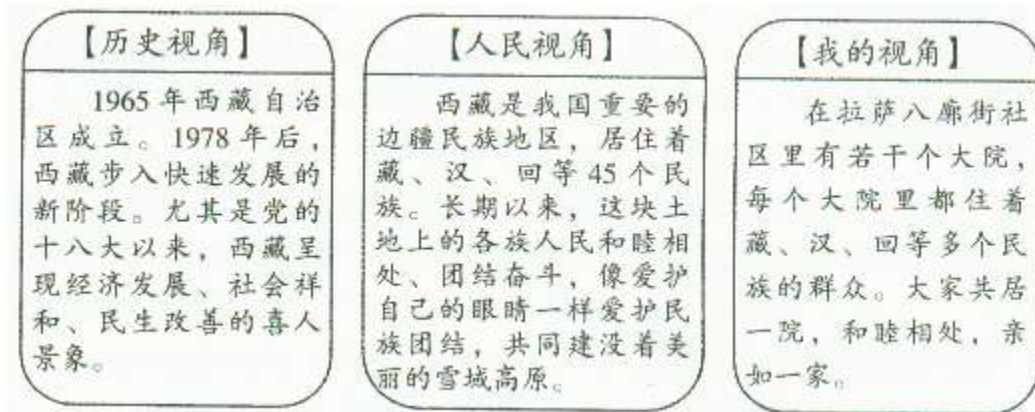 【历史视角】
1965 年西藏自治
区成立。1978 年后，
西藏步入快速发展的
新阶段。尤其是党的
十八大以来，西藏呈
现经济发展、社会祥
和、民生改善的喜人
景象。
【人民视角】
西藏是我国重要的
边疆民族地区，居住着
藏、汉、回等 45 个民
族。长期以来，这块土
地上的各族人民和睦相
处、团结奋斗，像爱护
自己的眼睛一样爱护民
族团结，共同建没着美
丽的雪域高原。
【我的视角】
在拉萨八廓街社
区里有若干个大院，
每个大院里都住着
藏、汉、回等多个民
族的群众。大家共居
一院，和睦相处，亲
如一家。